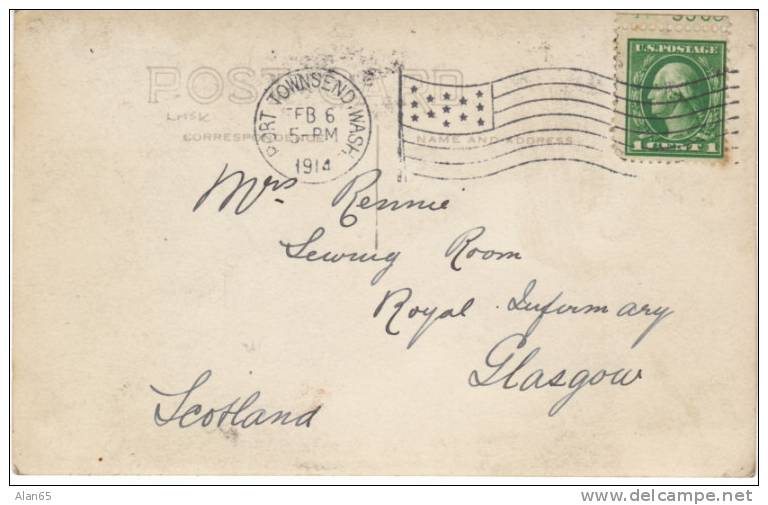 U.S. POSTAGE
1 CENT 1
POST CARD
PORT TOWNSEND, WASH.
FEB 6
5-PM
1914
CORRESPONDENCE
NAME AND ADDRESS
Mrs Rennie
Sewing Room
Royal Infirmary
Glasgow
Scotland
Alan65
delcampe.net